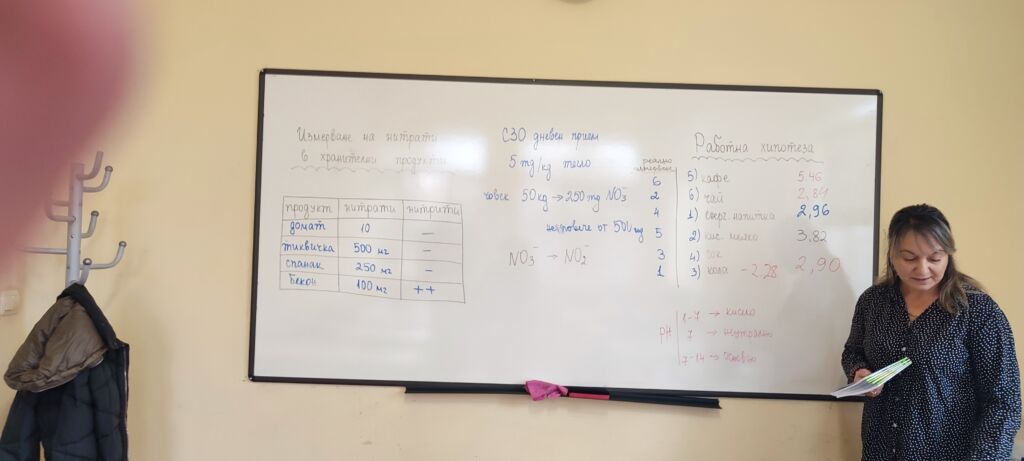 Измерване на нитрати
в хранителни продукти
продукт нитрати нитрити
домат 10 –
тиквичка 500 мг –
спанак 250 мг –
бекон 100 мг ++
СЗО дневен прием
5 mg/kg тело
човек 50kg → 250 mg NO₃⁻
не повече от 500 mg
NO₃⁻ → NO₂⁻
реално
измерване
6
2
4
5
3
1
Работна хипотеза
5) кафе 5.46
6) чай 2,84
1) енерг. напитка 2,96
2) кис. мляко 3,82
4) сок 2,90
3) кола – 2,28
PH
1-7 → кисело
7 → неутрално
7-14 →